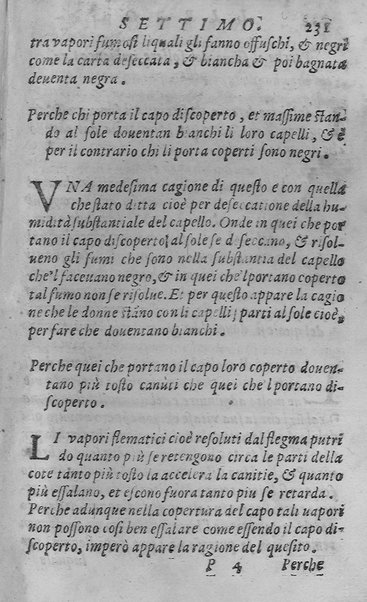 SETTIMO. 231
tra vapori fumosi liquali gli fanno offuschi, & negri
come la carta deseccata, & biancha & poi bagnata
deventa negra.
Perche chi porta il capo discoperto, et massime stan-
do al sole doventan bianchi li loro capelli, & è
per il contrario chi li porta coperti sono negri.
VNA medesima cagione di questo e con quella
che stato ditta cioè per deseccatione della hu-
midità substantiale del capello. Onde in quei che por
tano il capo discoperto, al sole se deseccano, & risol-
ueno gli fumi che sono nella substantia del capello
che'l faceuano negro, & in quei che'l portano coperto
tal fumo non se risolue. Et per questo appare la cagio
ne che le donne stano con li capelli sparti al sole cioè,
per fare che douentano bianchi.
Perche quei che portano il capo loro coperto douen-
tano più tosto canuti che quei che'l portano di-
scoperto.
LI vapori flematici cioè resoluti dal flegma putri
do quanto più se retengono circa le parti della
cote tanto più tosto la accelera la canitie, & quanto
più essalano, et escono fuora tanto più se retarda.
Perche adunque nella copertura del capo tali uapori
non possono cosi ben essalare come essendo il capo di-
scoperto, imperò appare la ragione del quesito.
P 4 Perche